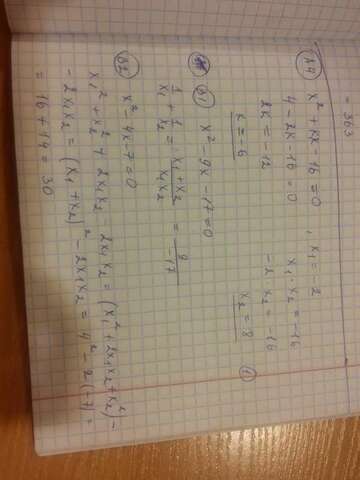 = 363
A4 x² + kx - 16 = 0 , x₁ = -2
4 - 2k - 16 = 0 x₁ · x₂ = -16
2k = -12 -2 x₂ = -16
k = -6 x₂ = 8
B1 x² - 9x - 17 = 0
1/x₁ + 1/x₂ = (x₁ + x₂)/(x₁x₂) = 9/-17
B2 x² - 4x - 7 = 0
x₁² + x₂² + 2x₁x₂ - 2x₁x₂ = (x₁² + 2x₁x₂ + x₂²) -
- 2x₁x₂ = (x₁ + x₂)² - 2x₁x₂ = 4² - 2·(-7) =
= 16 + 14 = 30